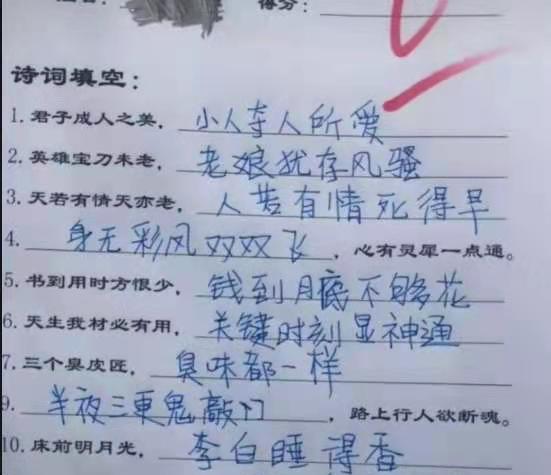 得分:
诗词填空:
1.君子成人之美, 小人夺人所爱
2.英雄宝刀未老, 老娘犹存风骚
3.天若有情天亦老, 人若有情死得早
4. 身无彩凤双双飞 , 心有灵犀一点通。
5.书到用时方恨少, 钱到月底不够花
6.天生我材必有用, 关键时刻显神通
7.三个臭皮匠, 臭味都一样
9. 半夜三更鬼敲门 , 路上行人欲断魂。
10.床前明月光, 李白睡得香